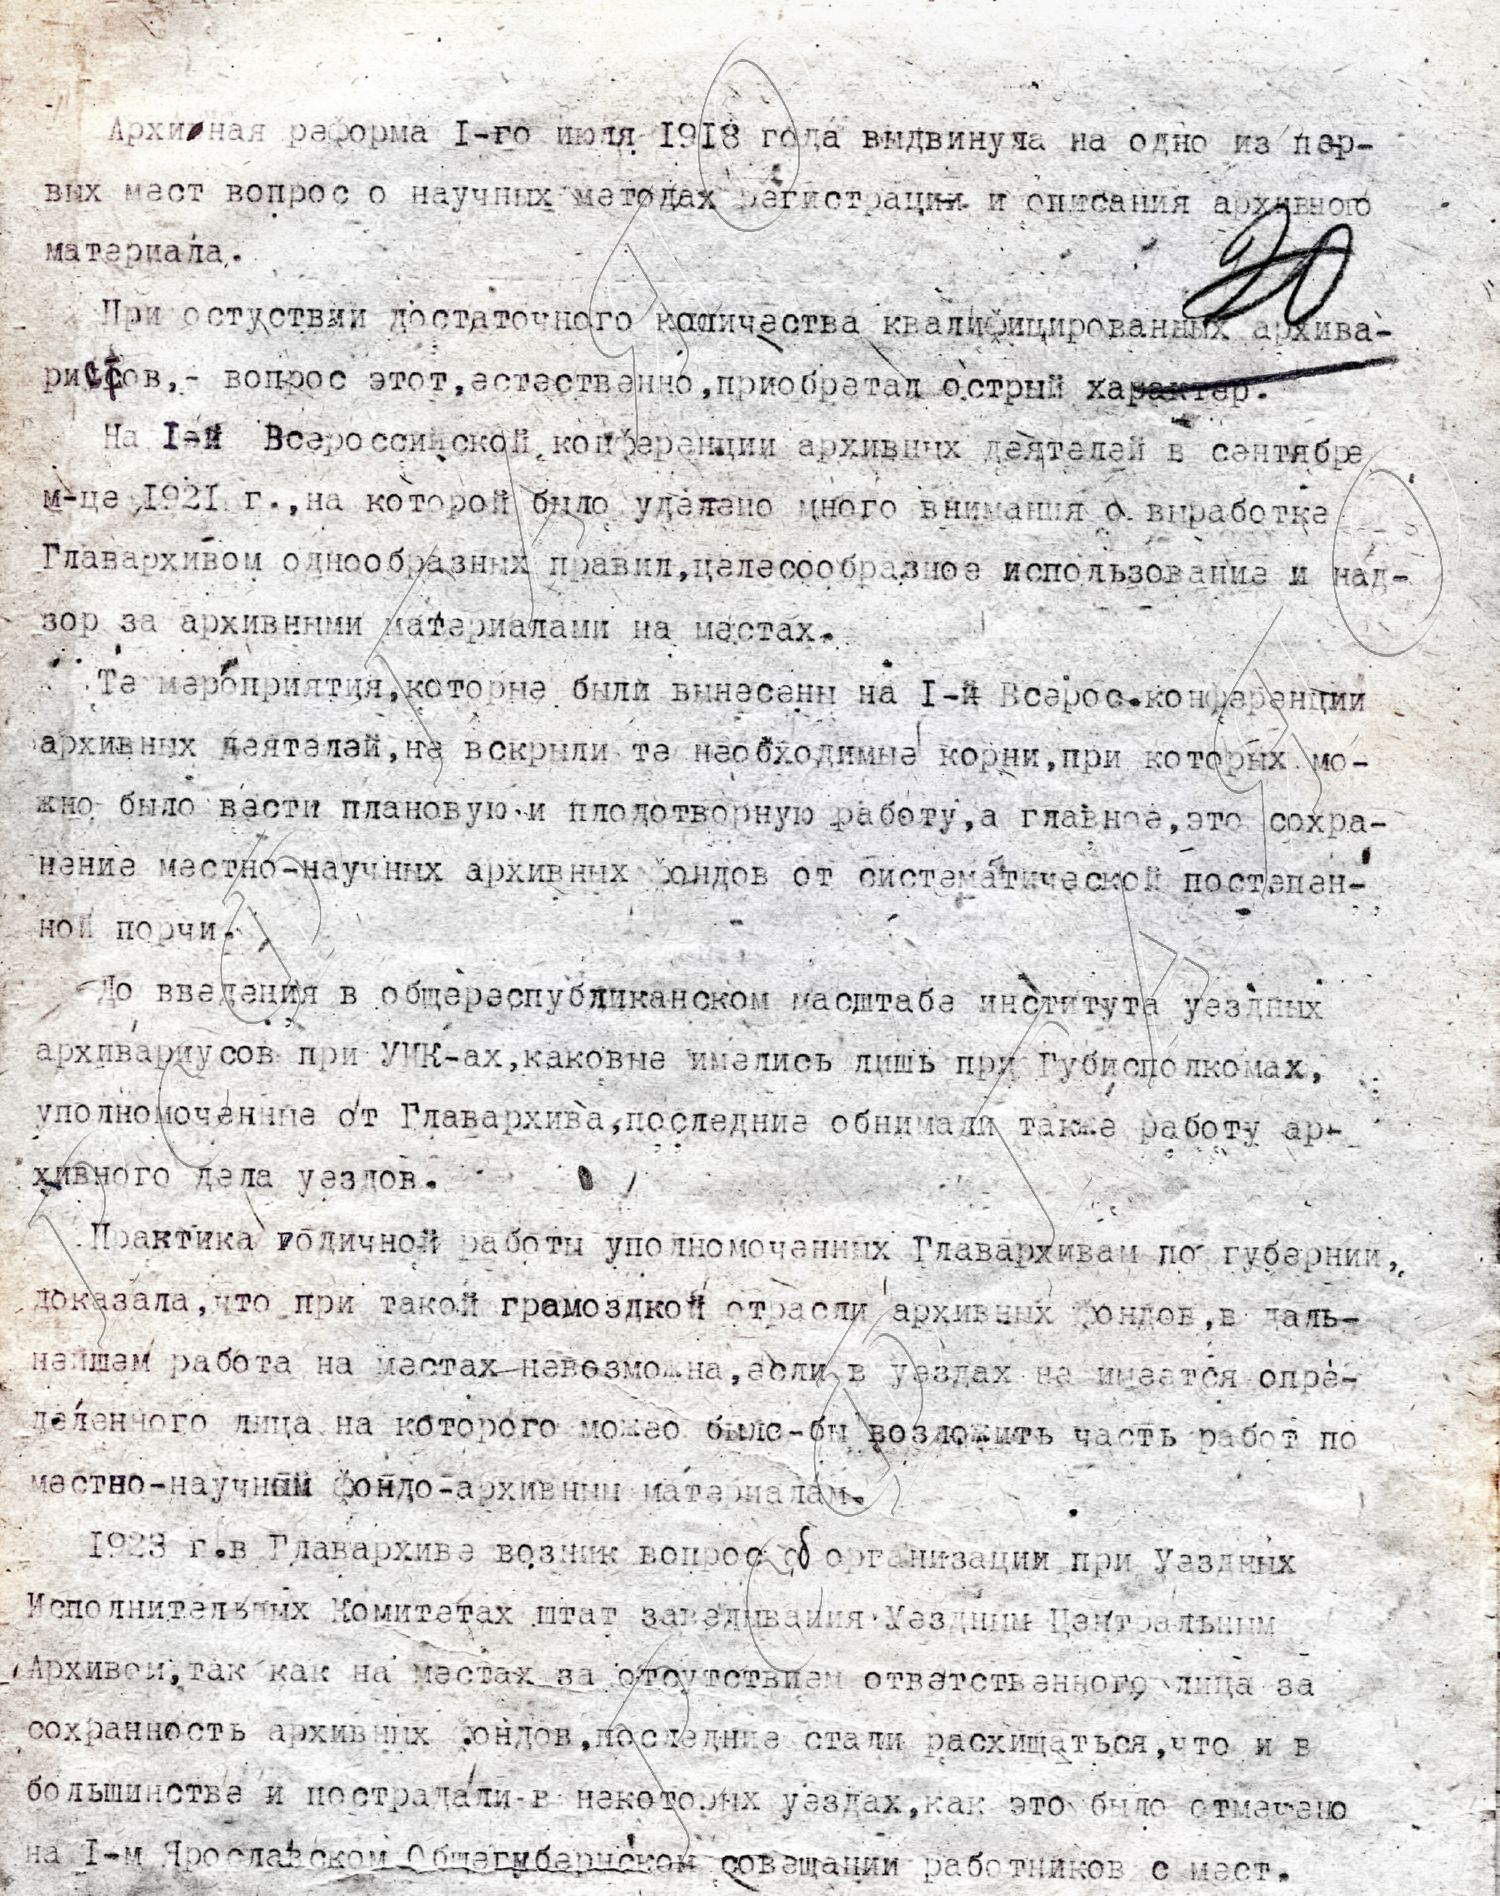 Архивная реформа I-го июля 1918 года выдвинула на одно из пер-
вых мест вопрос о научных методах регистрации и описания архивного
материала.
20
При остуствии достаточного количества квалифицированных архива-
ристов,- вопрос этот,естественно,приобретал острый характер.
На Iей Всероссийской конференции архивных деятелей в сентябре
м-це 1921 г.,на которой было уделено много внимания о выработке
Главархивом однообразных правил,целесообразное использование и над-
зор за архивными материалами на местах.
Те мероприятия,которые были вынесены на I-й Всерос.конференции
архивных деятелей,не вскрыли те необходимые корни,при которых мо-
жно было вести плановую и плодотворную работу,а главное,это сохра-
нение местно-научных архивных фондов от систематической постепен-
ной порчи.
До введения в общереспубликанском масштабе института уездных
архивариусов при УИК-ах,каковые имелись лишь при Губисполкомах,
уполномоченные от Главархива,последние обнимали также работу ар-
хивного дела уездов.
Практика годичной работы уполномоченных Главархивам по губернии,
доказала,что при такой грамоздкой отрасли архивных фондов,в даль-
нейшем работа на местах невозможна,если в уездах не имеется опре-
деленного лица на которого можно было-бы возложить часть работ по
местно-научным фондо-архивным материалам.
1923 г.в Главархиве возник вопрос об организации при Уездных
Исполнительных Комитетах штат заведывания Уездным Центральным
Архивом,так как на местах за отсутствием ответственного лица за
сохранность архивных фондов,последние стали расхищаться,что и в
большинстве и пострадали в некоторых уездах,как это было отмечено
на I-м Ярославском Общегубернском совещании работников с мест.